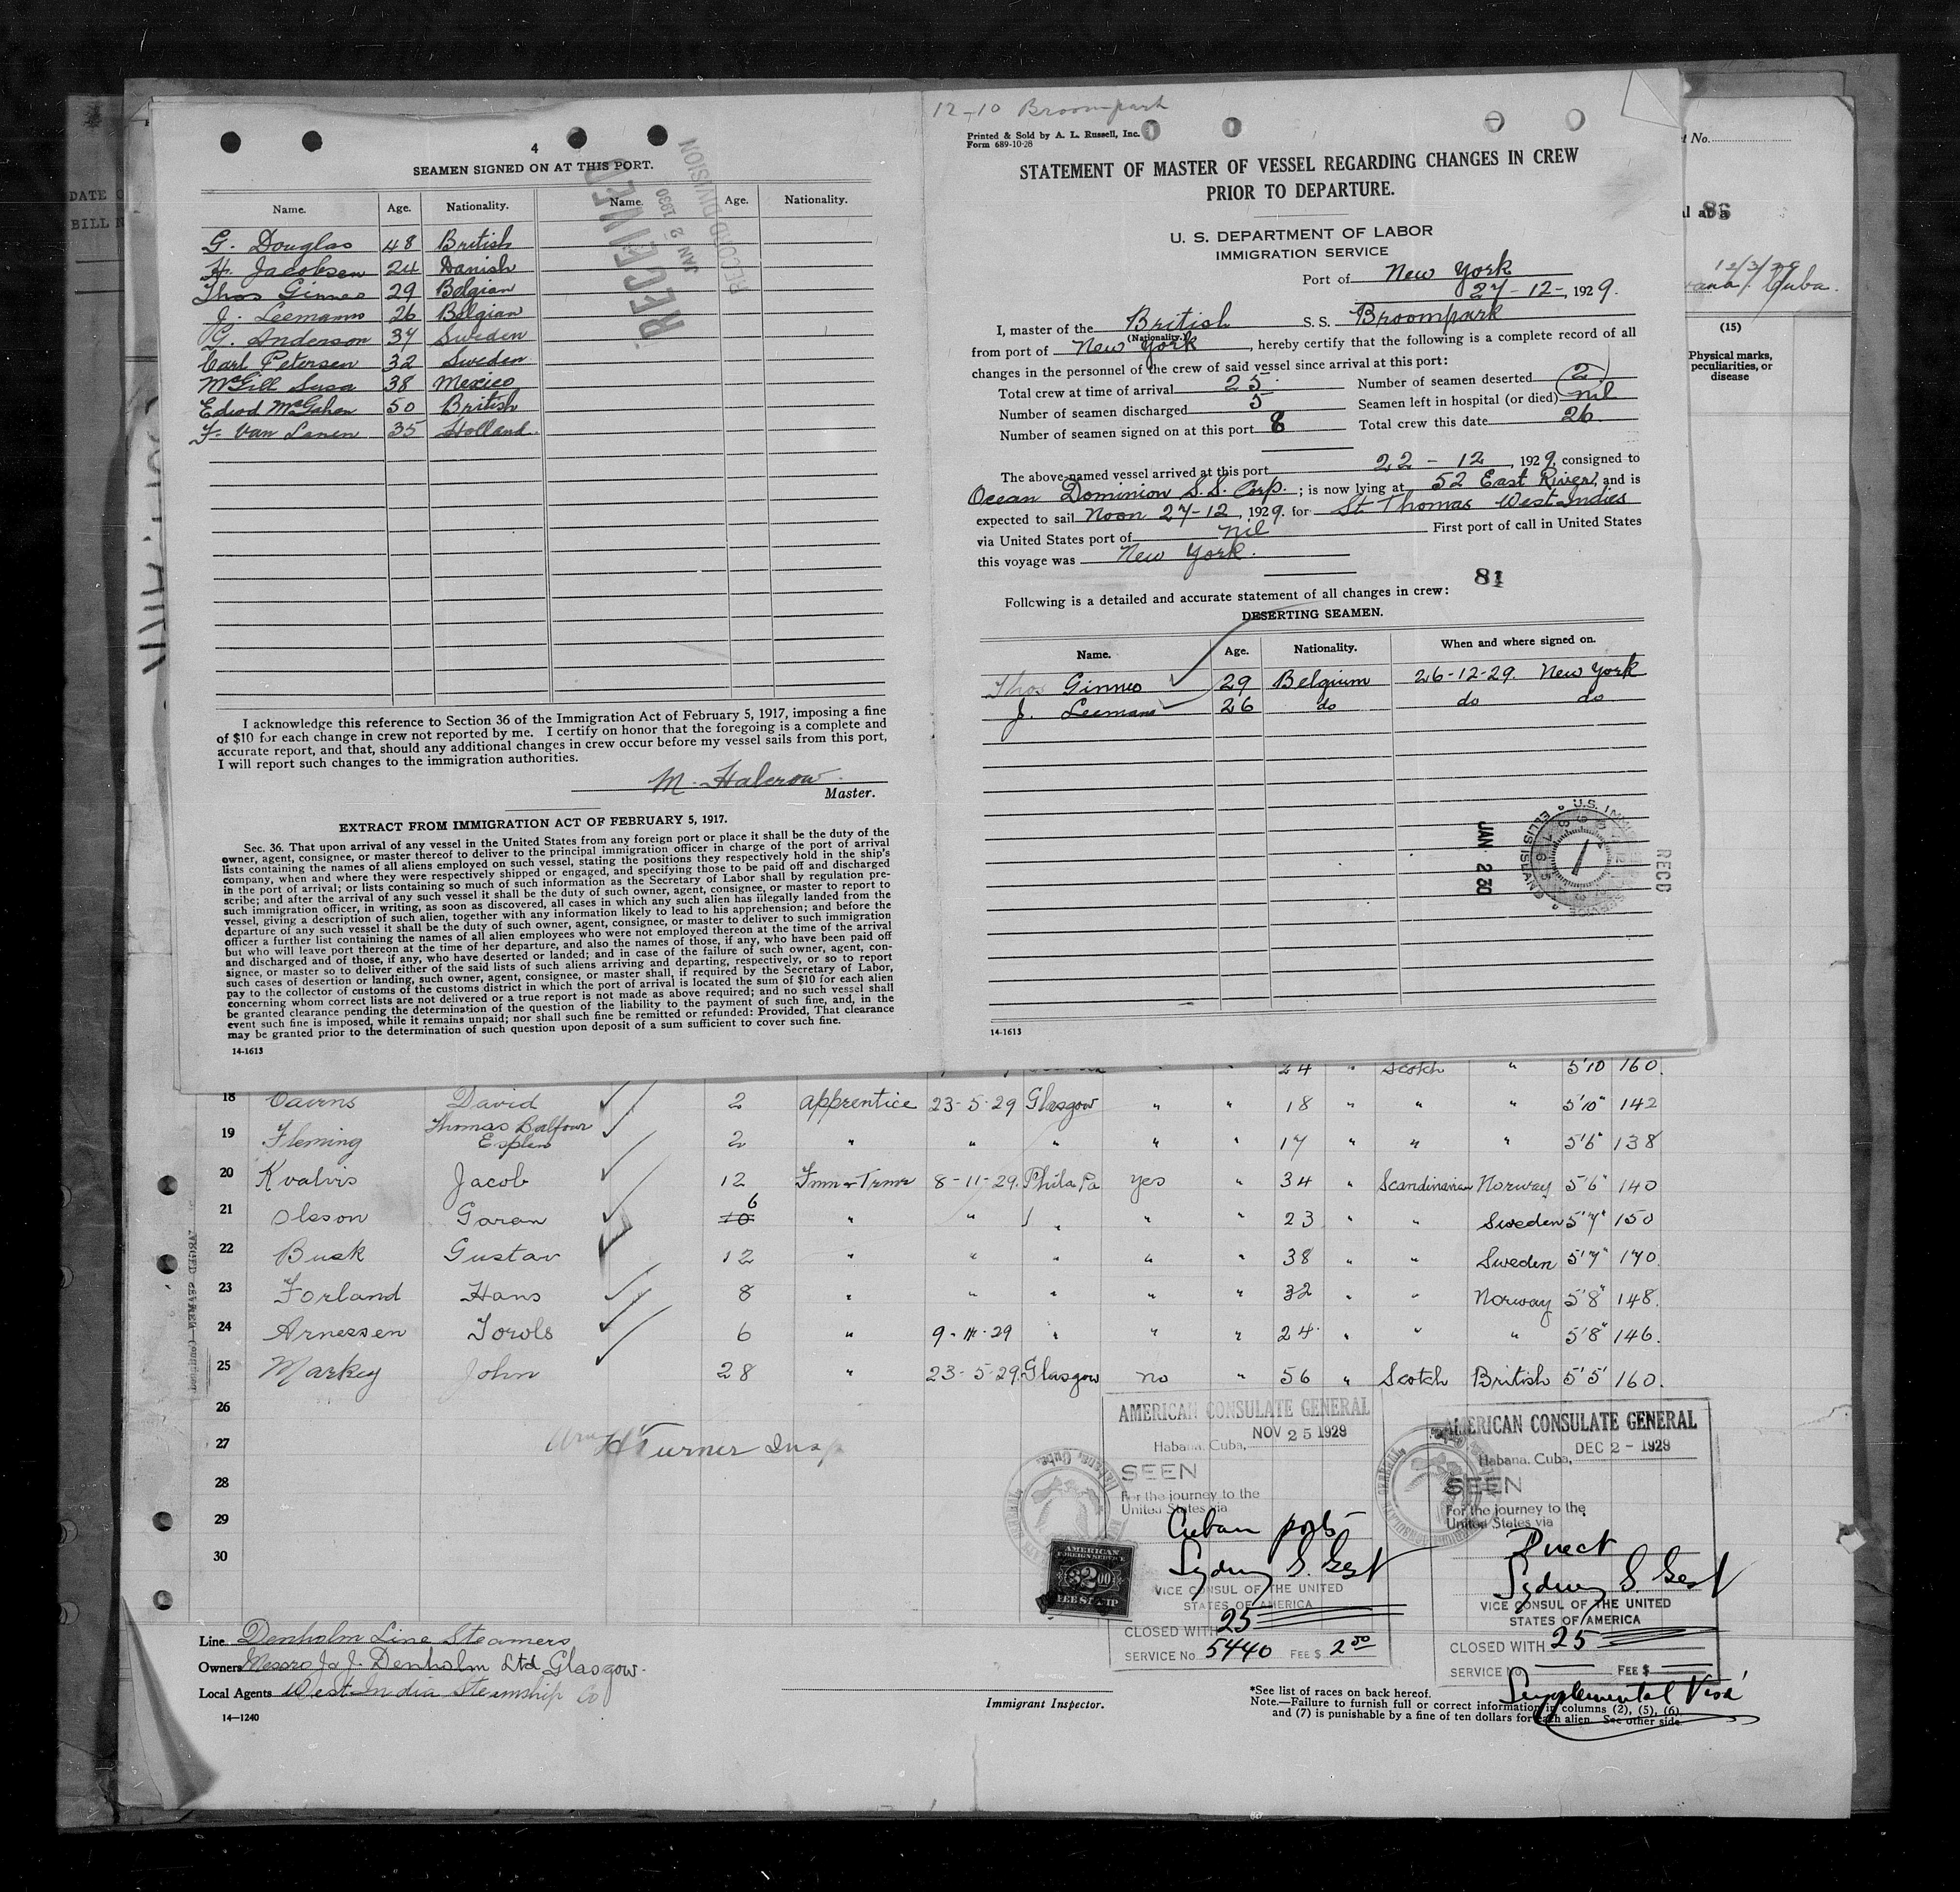 12-10 Broompark
4
SEAMEN SIGNED ON AT THIS PORT.
Name. Age. Nationality. Name. Age. Nationality.
G. Douglas 48 British
H. Jacobsen 24 Danish
Thos Ginnes 29 Belgian
J. Leemans 26 Belgian
G. Anderson 34 Sweden
Carl Petersen 32 Sweden
McGill Susa 38 Mexico
Edwd McGahan 50 British
F. Van Lanen 35 Holland
RECEIVED
JAN 2 1930
RECORD DIVISION
I acknowledge this reference to Section 36 of the Immigration Act of February 5, 1917, imposing a fine
of $10 for each change in crew not reported by me. I certify on honor that the foregoing is a complete and
accurate report, and that, should any additional changes in crew occur before my vessel sails from this port,
I will report such changes to the immigration authorities.
M. Halcrow
Master.
EXTRACT FROM IMMIGRATION ACT OF FEBRUARY 5, 1917.
Sec. 36. That upon arrival of any vessel in the United States from any foreign port or place it shall be the duty of the
owner, agent, consignee, or master thereof to deliver to the principal immigration officer in charge of the port of arrival
lists containing the names of all aliens employed on such vessel, stating the positions they respectively hold in the ship's
company, when and where they were respectively shipped or engaged, and specifying those to be paid off and discharged
in the port of arrival; or lists containing so much of such information as the Secretary of Labor shall by regulation pre-
scribe; and after the arrival of any such vessel it shall be the duty of such owner, agent, consignee, or master to report to
such immigration officer, in writing, as soon as discovered, all cases in which any such alien has illegally landed from the
vessel, giving a description of such alien, together with any information likely to lead to his apprehension; and before the
departure of any such vessel it shall be the duty of such owner, agent, consignee, or master to deliver to such immigration
officer a further list containing the names of all alien employees who were not employed thereon at the time of the arrival
but who will leave port thereon at the time of her departure, and also the names of those, if any, who have been paid off
and discharged and of those, if any, who have deserted or landed; and in case of the failure of such owner, agent, con-
signee, or master so to deliver either of the said lists of such aliens arriving and departing, respectively, or so to report
such cases of desertion or landing, such owner, agent, consignee, or master shall, if required by the Secretary of Labor,
pay to the collector of customs of the customs district in which the port of arrival is located the sum of $10 for each alien
concerning whom correct lists are not delivered or a true report is not made as above required; and no such vessel shall
be granted clearance pending the determination of the question of the liability to the payment of such fine, and, in the
event such fine is imposed, while it remains unpaid; nor shall such fine be remitted or refunded: Provided, That clearance
may be granted prior to the determination of such question upon deposit of a sum sufficient to cover such fine.
14-1613
Printed & Sold by A. L. Russell, Inc.
Form 689-10-28
STATEMENT OF MASTER OF VESSEL REGARDING CHANGES IN CREW
PRIOR TO DEPARTURE.
U. S. DEPARTMENT OF LABOR
IMMIGRATION SERVICE
Port of New York
27-12-, 1929.
I, master of the British S. S. Broompark
(Nationality.)
from port of New York, hereby certify that the following is a complete record of all
changes in the personnel of the crew of said vessel since arrival at this port:
Total crew at time of arrival 25 Number of seamen deserted 2
Number of seamen discharged 5 Seamen left in hospital (or died) nil
Number of seamen signed on at this port 8 Total crew this date 26.
The above-named vessel arrived at this port 22-12, 1929, consigned to
Ocean Dominion S.S. Corp.; is now lying at 52 East River, and is
expected to sail Noon 27-12, 1929. for St. Thomas West Indies
via United States port of nil First port of call in United States
this voyage was New York.
81
Following is a detailed and accurate statement of all changes in crew:
DESERTING SEAMEN.
Name. Age. Nationality. When and where signed on.
Thos Ginnes 29 Belgium 26-12-29. New York
J. Leemans 26 do do do
U.S. IMMIGRATION SERVICE
ELLIS ISLAND
JAN 2 30
RECD
14-1613
DATE O
BILL N
t No.
al at a 86
12/3/29
vana, Cuba.
(15)
Physical marks,
peculiarities, or
disease
24 " Scotch " 5'10 160.
18 Cairns David 2 apprentice 23-5-29 Glasgow " " 18 " " " 5'10" 142
19 Fleming Thomas Balfour Esplen 2 " " " " " 17 " " " 5'6" 138
20 Kvalvis Jacob 12 Fmn & Trmr 8-11-29. Phila Pa yes " 34 " Scandinavian Norway 5'6" 140
21 Olsson Goran 10 6 " " " " " 23 " " Sweden 5'7" 150
22 Busk Gustav 12 " " " " " 38 " " Sweden 5'7" 170
23 Forland Hans 8 " " " " " 32 " " Norway 5'8" 148.
24 Arnessen Torols 6 " 9-11-29 " " " 24 " " " 5'8" 146.
25 Markey John 28 " 23-5-29. Glasgow no " 56 " Scotch British 5'5' 160.
26
27 Wm H Turner Insp
28
29
30
AMERICAN CONSULATE GENERAL
Habana, Cuba, NOV 25 1929
SEEN
For the journey to the
United States via
Cuban ports
Sydney S. Gest
VICE CONSUL OF THE UNITED
STATES OF AMERICA
CLOSED WITH 25
SERVICE No. 5440 FEE $ 2.00
AMERICAN
FOREIGN SERVICE
$2.00
FEE STAMP
AMERICAN CONSULATE GENERAL
Habana, Cuba, DEC 2 - 1929
SEEN
For the journey to the
United States via
Direct
Sydney S. Gest
VICE CONSUL OF THE UNITED
STATES OF AMERICA
CLOSED WITH 25
SERVICE N FEE $
Supplemental Visa
Line Denholm Line Steamers
Owners Messrs J & J. Denholm Ltd Glasgow.
Local Agents West India Steamship Co
14—1240
Immigrant Inspector.
*See list of races on back hereof.
Note.—Failure to furnish full or correct information in columns (2), (5), (6),
and (7) is punishable by a fine of ten dollars for each alien. See other side.